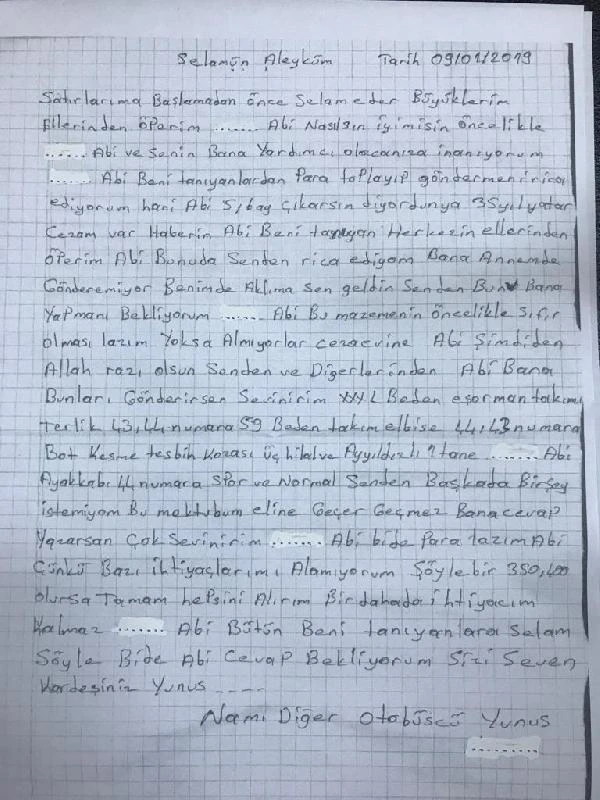 Selamün Aleyküm Tarih 09/01/2019
Satırlarıma Başlamadan önce Selam eder Büyüklerim
Ellerinden öperim ....... Abi Nasılsın iyimisin öncelikle
...... Abi ve senin Bana Yardımcı olacanıza inanıyorum
...... Abi Beni tanıyanlardan Para toplayıp göndermeni rica
ediyorum hani Abi 5,6ay çıkarsın diyordunya 35yıl yatar
Cezam var Haberin Abi Beni tanıyan Herkezin ellerinden
öperim Abi Bunuda Senden rica ediyom Bana Annemde
Gönderemiyor Benimde Aklıma sen geldin Senden Bunu Bana
Yapmanı Bekliyorum ....... Abi Bu mazemenin öncelikle Sıfır
olması lazım Yoksa Almıyorlar cezaevine Abi Şimdiden
Allah razı olsun Senden ve Diğerlerinden Abi Bana
Bunları Gönderirsen Sevinirim XXXL Beden eşorman takımı
Terlik 43,44 numara 59 Beden takım elbise 44,43 numara
Bot Kesme tesbih Kozası üç hilal ve Ayyıldızlı 1 tane ......... Abi
Ayakkabı 44 numara Spor ve Normal Senden Başkada Birşey
istemiyom Bu mektubum eline Geçer Geçmez Bana cevap
Yazarsan Çok Sevinirim ........ Abi bide Para lazım Abi
Çünkü Bazı ihtiyaçlarımı Alamıyorum Şöyle bir 350,400
olursa Tamam hepsini Alırım Bir dahada ihtiyacım
Kalmaz ....... Abi Bütün Beni tanıyanlara Selam
Söyle Bide Abi Cevap Bekliyorum Sizi Seven
Kardeşiniz Yunus ----
Namı Diğer Otobüscü Yunus
..........